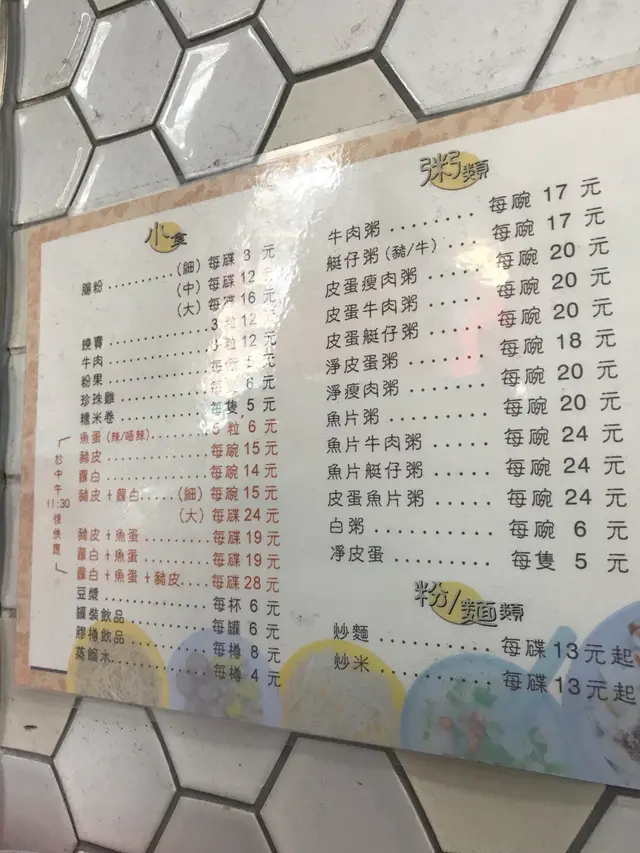 小食
腸粉..........(細) 每碟 3 元
(中) 每碟 12 元
(大) 每碟 16 元
燒賣.............3 粒 12 元
牛肉.............3 粒 12 元
粉果............. 5 元
珍珠雞............. 6 元
糯米卷.............每隻 5 元
魚蛋(辣/唔辣)..........5 粒 6 元
豬皮.............每碗 15 元
蘿白.............每碗 14 元
豬皮+蘿白.....(細) 每碗 15 元
(大) 每碟 24 元
豬皮+魚蛋........每碟 19 元
蘿白+魚蛋........每碟 19 元
蘿白+魚蛋+豬皮....每碟 28 元
於中午11:30後供應
豆漿.............每杯 6 元
罐裝飲品..........每罐 6 元
膠樽飲品..........每樽 8 元
蒸餾水............每樽 4 元
粥類
牛肉粥.........每碗 17 元
艇仔粥(豬/牛)....每碗 17 元
皮蛋瘦肉粥.......每碗 20 元
皮蛋牛肉粥.......每碗 20 元
皮蛋艇仔粥.......每碗 20 元
淨皮蛋粥.........每碗 18 元
淨瘦肉粥.........每碗 20 元
魚片粥...........每碗 20 元
魚片牛肉粥.......每碗 24 元
魚片艇仔粥.......每碗 24 元
皮蛋魚片粥.......每碗 24 元
白粥.............每碗 6 元
凈皮蛋...........每隻 5 元
粉/麵類
炒麵...........每碟 13 元起
炒米...........每碟 13 元起